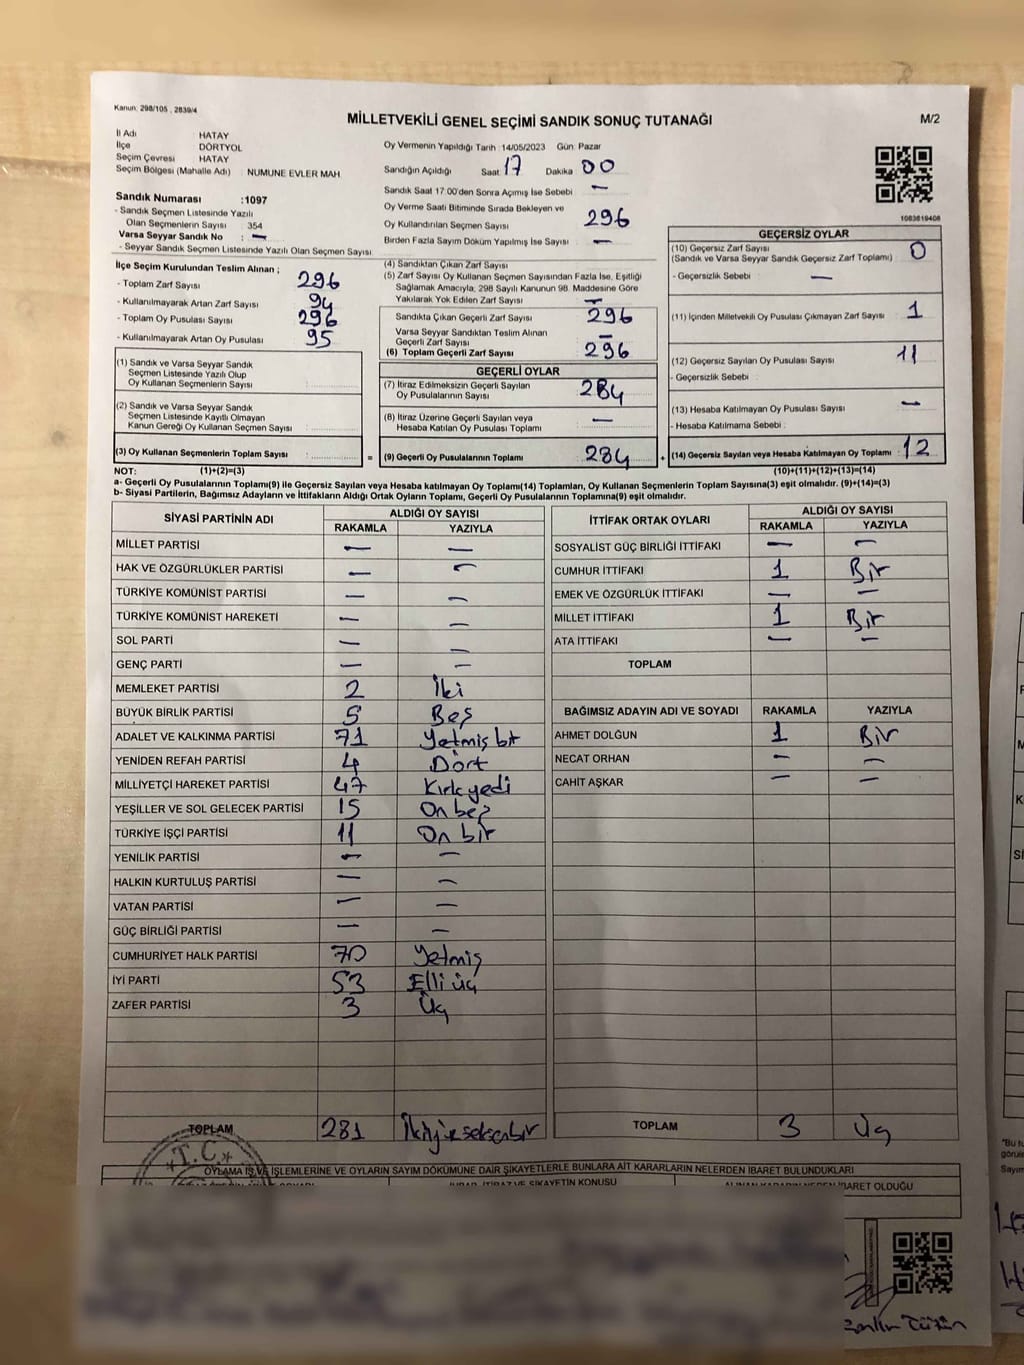 Kanun: 298/105 , 2839/4
MİLLETVEKİLİ GENEL SEÇİMİ SANDIK SONUÇ TUTANAĞI
M/2
İl Adı HATAY
İlçe DÖRTYOL
Seçim Çevresi HATAY
Seçim Bölgesi (Mahalle Adı) NUMUNE EVLER MAH.
Sandık Numarası :1097
- Sandık Seçmen Listesinde Yazılı
Olan Seçmenlerin Sayısı : 354
Varsa Seyyar Sandık No : —
- Seyyar Sandık Seçmen Listesinde Yazılı Olan Seçmen Sayısı:
İlçe Seçim Kurulundan Teslim Alınan ;
- Toplam Zarf Sayısı 296
- Kullanılmayarak Artan Zarf Sayısı 94
- Toplam Oy Pusulası Sayısı 296
- Kullanılmayarak Artan Oy Pusulası 95
(1) Sandık ve Varsa Seyyar Sandık
Seçmen Listesinde Yazılı Olup
Oy Kullanan Seçmenlerin Sayısı
(2) Sandık ve Varsa Seyyar Sandık
Seçmen Listesinde Kayıtlı Olmayan
Kanun Gereği Oy Kullanan Seçmen Sayısı
(3) Oy Kullanan Seçmenlerin Toplam Sayısı :
Oy Vermenin Yapıldığı Tarih :14/05/2023 Gün: Pazar
Sandığın Açıldığı Saat 17 Dakika 00
Sandık Saat 17:00'den Sonra Açımış İse Sebebi —
Oy Verme Saati Bitiminde Sırada Bekleyen ve
Oy Kullandırılan Seçmen Sayısı 296
Birden Fazla Sayım Döküm Yapılmış İse Sayısı —
(4) Sandıktan Çıkan Zarf Sayısı
(5) Zarf Sayısı Oy Kullanan Seçmen Sayısından Fazla İse, Eşitliği
Sağlamak Amacıyla, 298 Sayılı Kanunun 98. Maddesine Göre
Yakılarak Yok Edilen Zarf Sayısı —
Sandıkta Çıkan Geçerli Zarf Sayısı 296
Varsa Seyyar Sandıktan Teslim Alınan
Geçerli Zarf Sayısı —
(6) Toplam Geçerli Zarf Sayısı 296
GEÇERLİ OYLAR
(7) İtiraz Edilmeksizin Geçerli Sayılan
Oy Pusulalarının Sayısı 284
(8) İtiraz Üzerine Geçerli Sayılan veya
Hesaba Katılan Oy Pusulası Toplamı —
= (9) Geçerli Oy Pusulalarının Toplamı 284
1083619408
GEÇERSİZ OYLAR
(10) Geçersiz Zarf Sayısı 0
(Sandık ve Varsa Seyyar Sandık Geçersiz Zarf Toplamı)
- Geçersizlik Sebebi : —
(11) İçinden Milletvekili Oy Pusulası Çıkmayan Zarf Sayısı 1
(12) Geçersiz Sayılan Oy Pusulası Sayısı 11
- Geçersizlik Sebebi :
(13) Hesaba Katılmayan Oy Pusulası Sayısı —
- Hesaba Katılmama Sebebi :
+ (14) Geçersiz Sayılan veya Hesaba Katılmayan Oy Toplamı 12
NOT: (1)+(2)=(3) (10)+(11)+(12)+(13)=(14)
a- Geçerli Oy Pusulasının Toplamı(9) ile Geçersiz Sayılan veya Hesaba katılmayan Oy Toplamı(14) Toplamları, Oy Kullanan Seçmenlerin Toplam Sayısına(3) eşit olmalıdır. (9)+(14)=(3)
b- Siyasi Partilerin, Bağımsız Adayların ve İttifakların Aldığı Ortak Oyların Toplamı, Geçerli Oy Pusulalarının Toplamına(9) eşit olmalıdır.
SİYASİ PARTİNİN ADI ALDIĞI OY SAYISI
RAKAMLA YAZIYLA
MİLLET PARTİSİ — —
HAK VE ÖZGÜRLÜKLER PARTİSİ — —
TÜRKİYE KOMÜNİST PARTİSİ — —
TÜRKİYE KOMÜNİST HAREKETİ — —
SOL PARTİ — —
GENÇ PARTİ — —
MEMLEKET PARTİSİ 2 İki
BÜYÜK BİRLİK PARTİSİ 5 Beş
ADALET VE KALKINMA PARTİSİ 71 Yetmiş bir
YENİDEN REFAH PARTİSİ 4 Dört
MİLLİYETÇİ HAREKET PARTİSİ 47 Kırk yedi
YEŞİLLER VE SOL GELECEK PARTİSİ 15 On beş
TÜRKİYE İŞÇİ PARTİSİ 11 On bir
YENİLİK PARTİSİ — —
HALKIN KURTULUŞ PARTİSİ — —
VATAN PARTİSİ — —
GÜÇ BİRLİĞİ PARTİSİ — —
CUMHURİYET HALK PARTİSİ 70 Yetmiş
İYİ PARTİ 53 Elli üç
ZAFER PARTİSİ 3 Üç
TOPLAM 281 İkiyüzseksenbir
İTTİFAK ORTAK OYLARI ALDIĞI OY SAYISI
RAKAMLA YAZIYLA
SOSYALİST GÜÇ BİRLİĞİ İTTİFAKI — —
CUMHUR İTTİFAKI 1 Bir
EMEK VE ÖZGÜRLÜK İTTİFAKI — —
MİLLET İTTİFAKI 1 Bir
ATA İTTİFAKI — —
TOPLAM
BAĞIMSIZ ADAYIN ADI VE SOYADI RAKAMLA YAZIYLA
AHMET DOLĞUN 1 Bir
NECAT ORHAN — —
CAHİT AŞKAR — —
TOPLAM 3 Üç
T.C.
OYLAMA İŞ VE İŞLEMLERİNE VE OYLARIN SAYIM DÖKÜMÜNE DAİR ŞİKAYETLERLE BUNLARA AİT KARARLARIN NELERDEN İBARET BULUNDUKLARI
İTİRAZ VE ŞİKAYETİN KONUSU
İBARET OLDUĞU